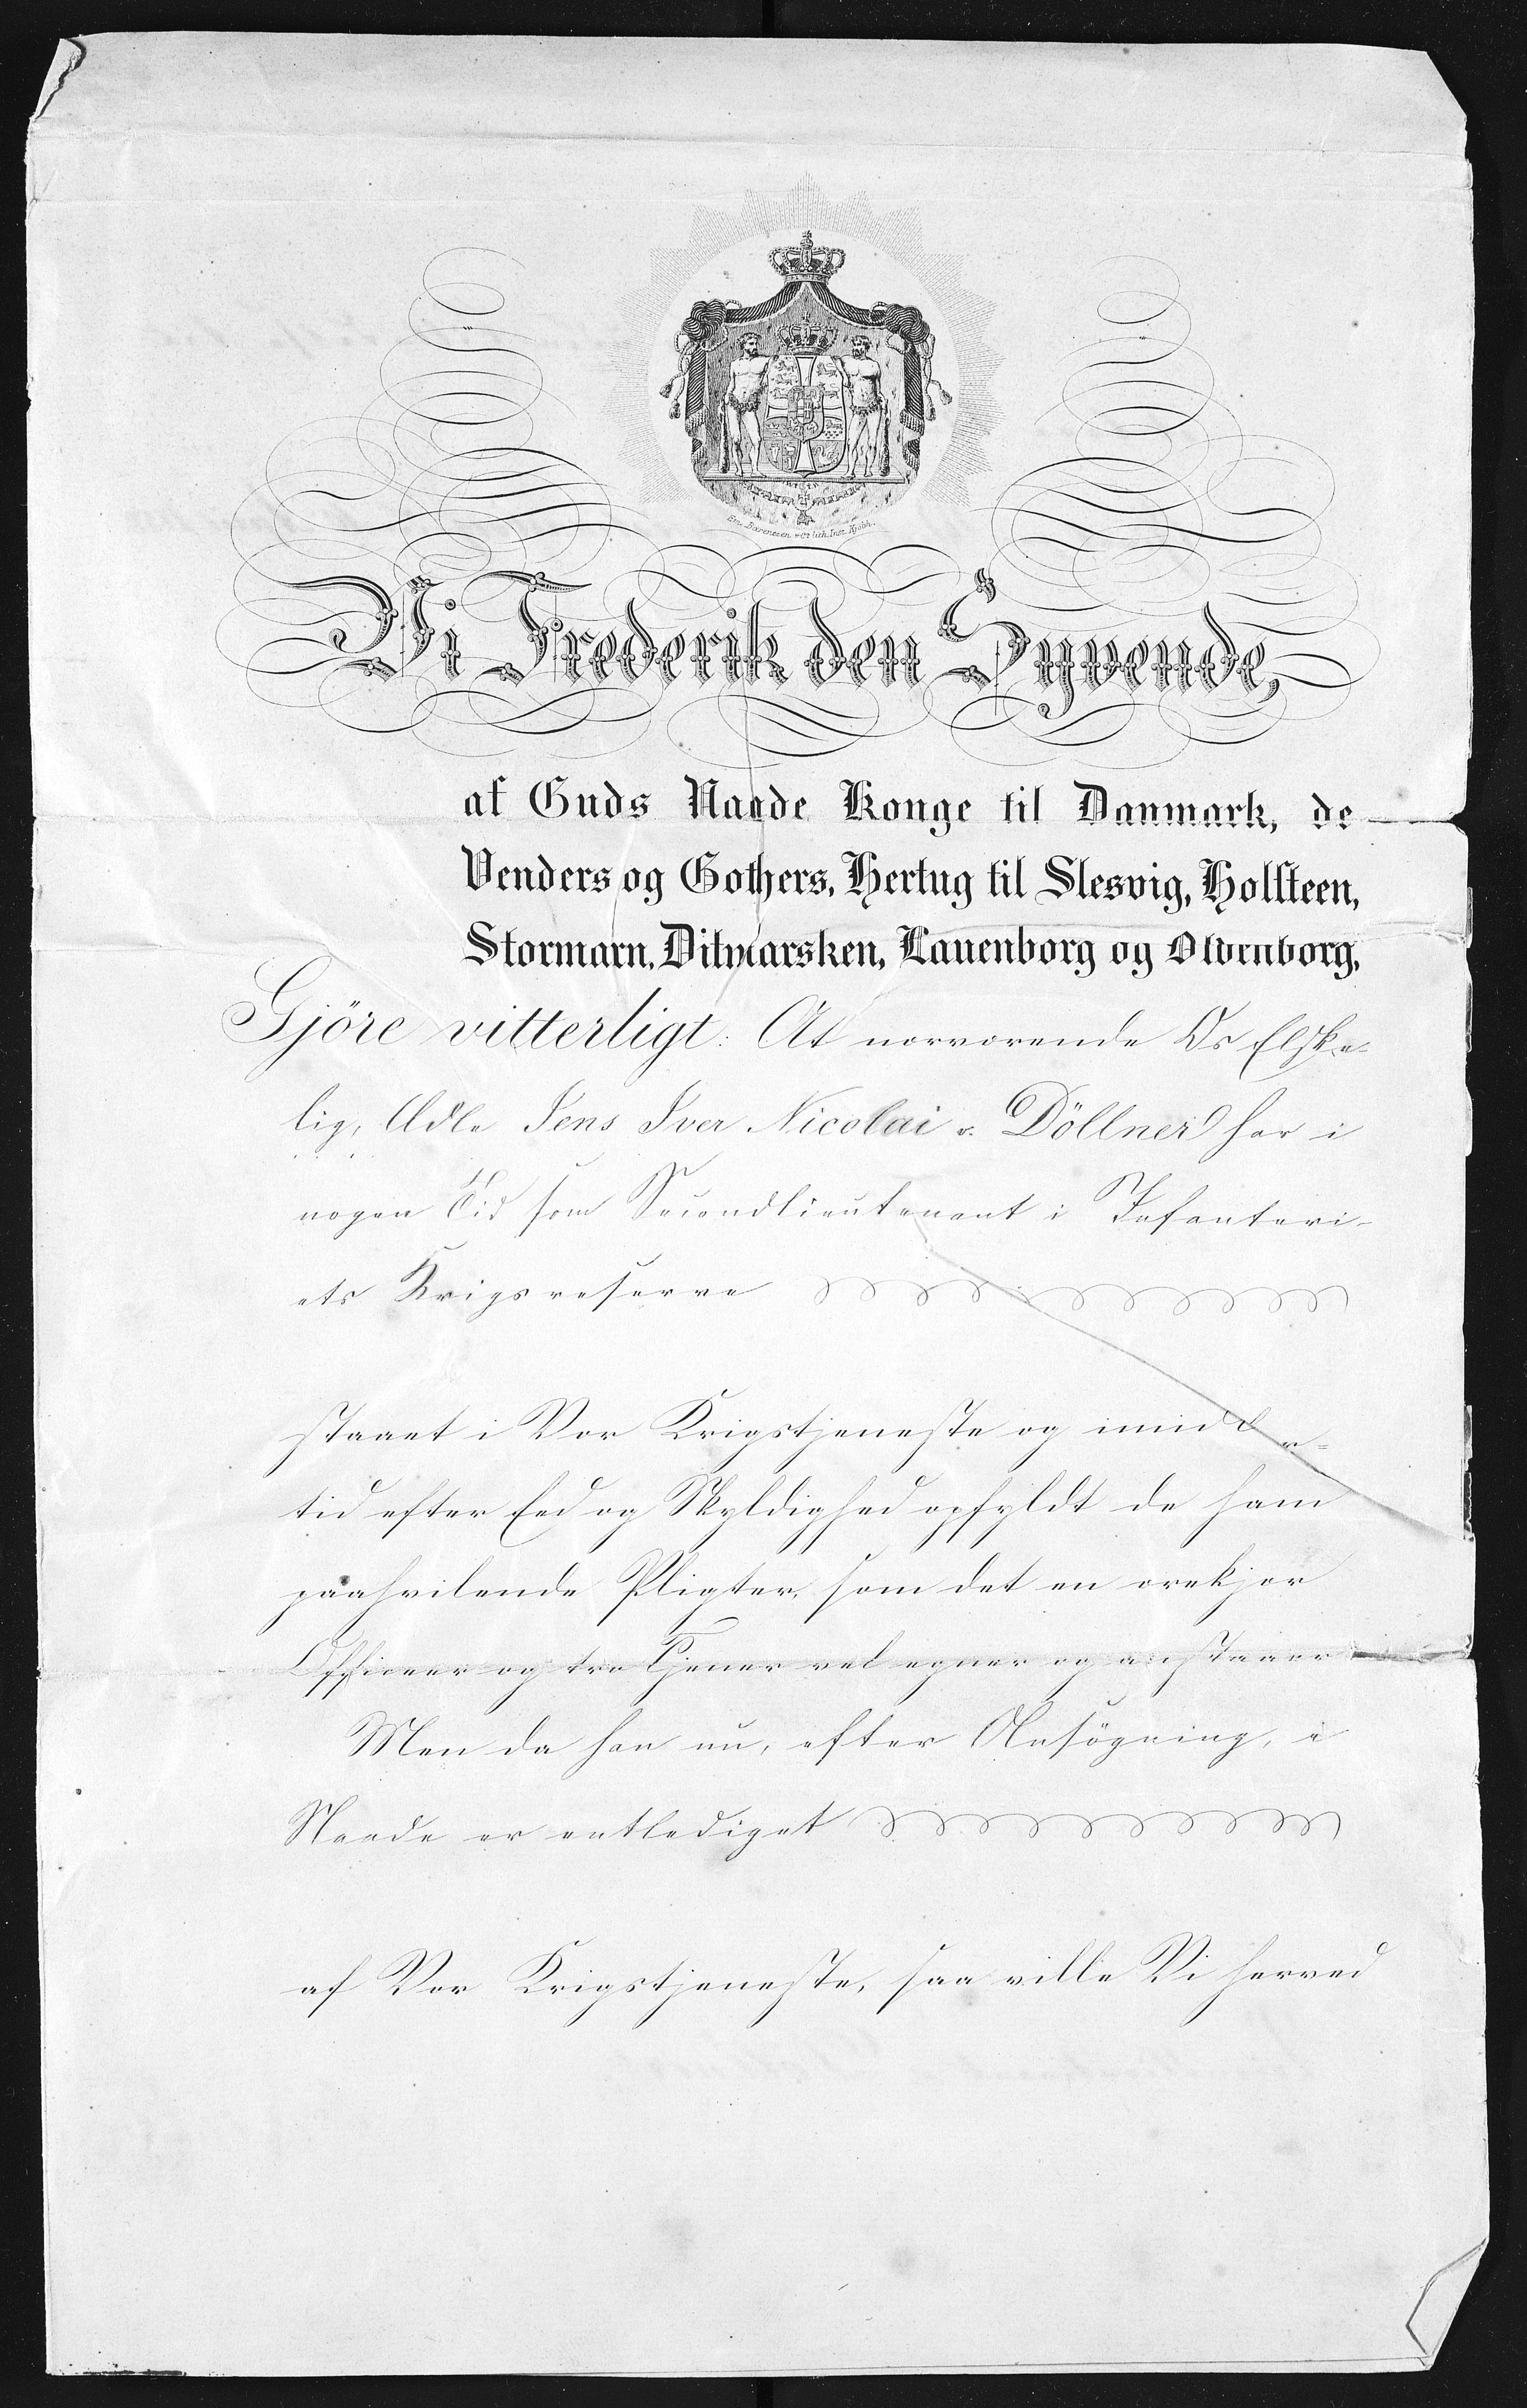 Em. Bærentzen & Co. lith. Inst. Kjøbh.
Vi Frederik den Syvende,
af Guds Naade Konge til Danmark, de
Venders og Gothers, Hertug til Slesvig, Holsteen,
Stormarn, Ditmarsken, Lauenborg og Oldenborg,
Gjöre vitterligt: At nærværende Os Elske-
lig, Ædle Jens Iver Nicolai v. Döllner har i
nogen Tid som Secondlieutenant i Infanteri-
ets Krigsreserve
staaet i Vor Krigstjeneste og imidler-
tid efter Eed og Skyldighed opfyldt de ham
paahvilende Pligter, som det en ærekjær
Officeer og tro Tjener vel egner og anstaaer
Men da han nu, efter Ansögning, i
Naade er entlediget
af Vor Krigstjeneste, saa ville Vi herved